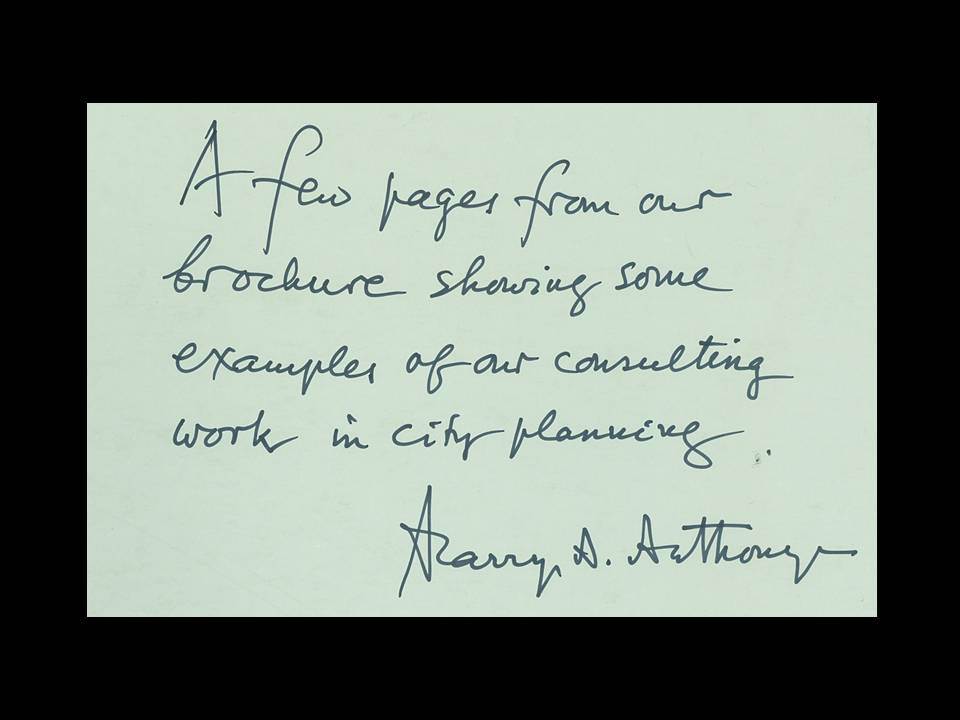 A few pages from our
brochure showing some
examples of our consulting
work in city planning.
Harry A. Anthony